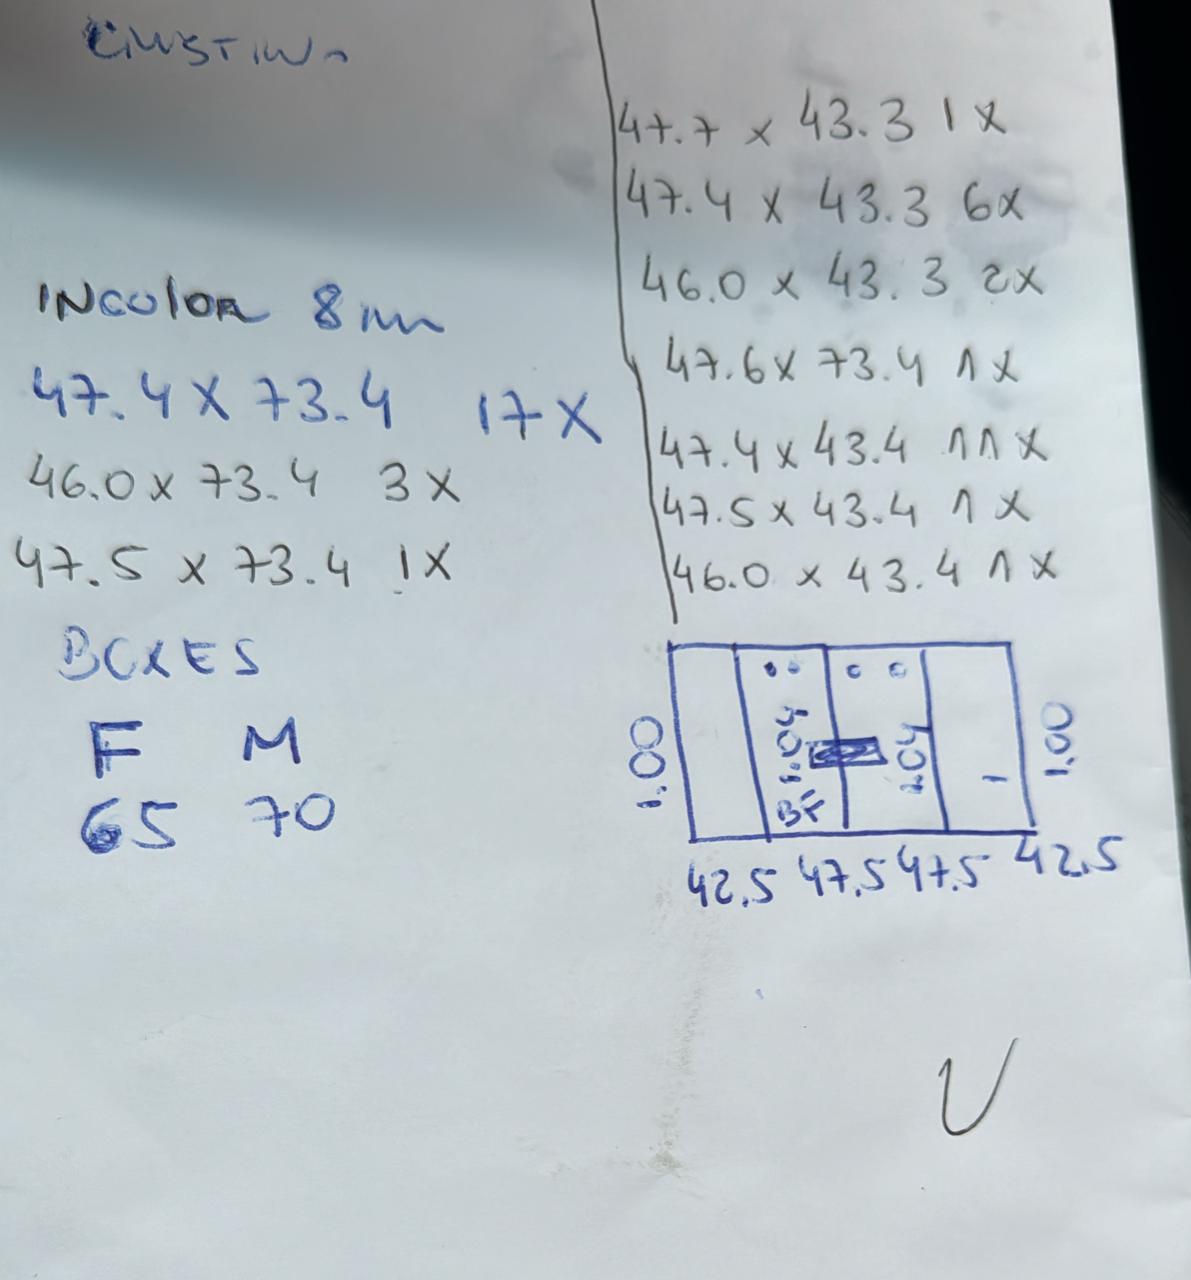 INColor 8mm
47.4 X 73.4 17 X
46.0 x 73.4 3 x
47.5 x 73.4 1 X
BOXES
F M
65 70
47.7 x 43.3 1 x
47.4 x 43.3 6x
46.0 x 43.3 2x
47.6 x 73.4 1 x
47.4 x 43.4 11 x
47.5 x 43.4 1 x
46.0 x 43.4 1 x
1.00 1.04 1.04 1.00
BF
42.5 47.5 47.5 42.5